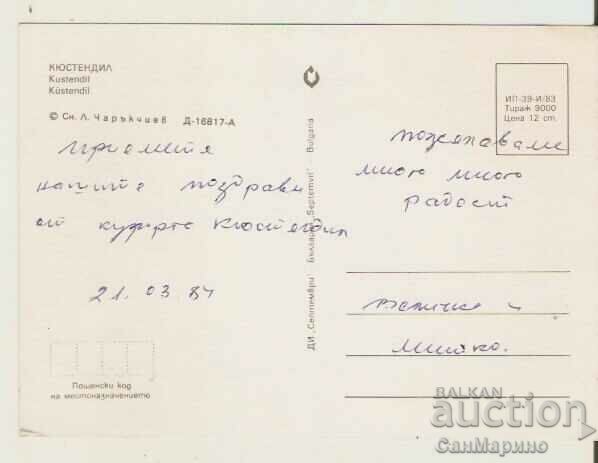 КЮСТЕНДИЛ
Kustendil
Küstendil
© Сн. Л. Чаръкчиев Д-16817-А
Приемете
нашите поздрави
от курорта Кюстендил
21. 03. 84
Пощенски код
на местоназначението
ДИ „Септември" България „Septemvri" - Bulgaria
ИП-39-И/83
Тираж 9000
Цена 12 ст.
пожелаваме
много много
радост
и
Митко.
BALKAN
auction
СанМарино